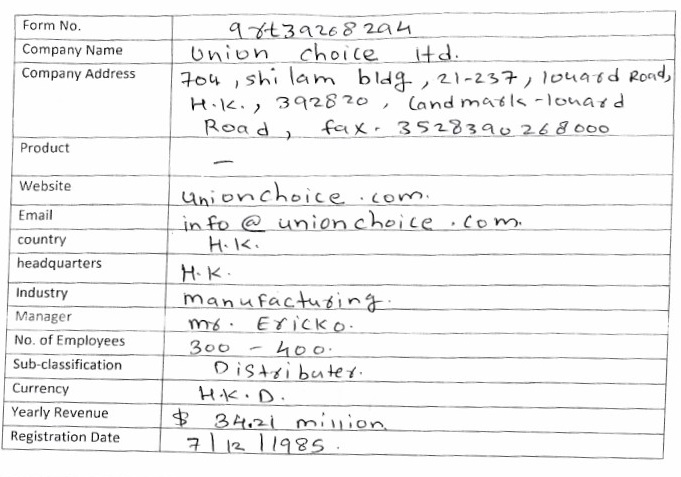 Form No. 98t39268294
Company Name Union Choice ltd.
Company Address 704, shilam bldg, 21-237, louard Road,
H.K., 392820, Landmark-louard
Road, fax. 3528390268000
Product —
Website unionchoice.com.
Email info@unionchoice.com.
country H.K.
headquarters H.K.
Industry manufacturing.
Manager mr. Ericko.
No. of Employees 300 - 400.
Sub-classification Distributer.
Currency H.K.D.
Yearly Revenue $ 34.21 million
Registration Date 7/12/1985.